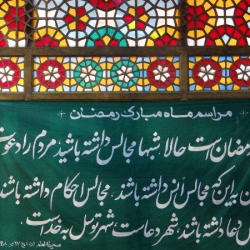 مراسم ماه مبارک رمضان
رمضان است حالا شبها مجالس داشته باشید مردم را دعوت
برای این که مجالس انس داشته باشند. مجالس احکام داشته باشند
دعا داشته باشند؛ شهر دعاست؛ شهر توسل به خداست.